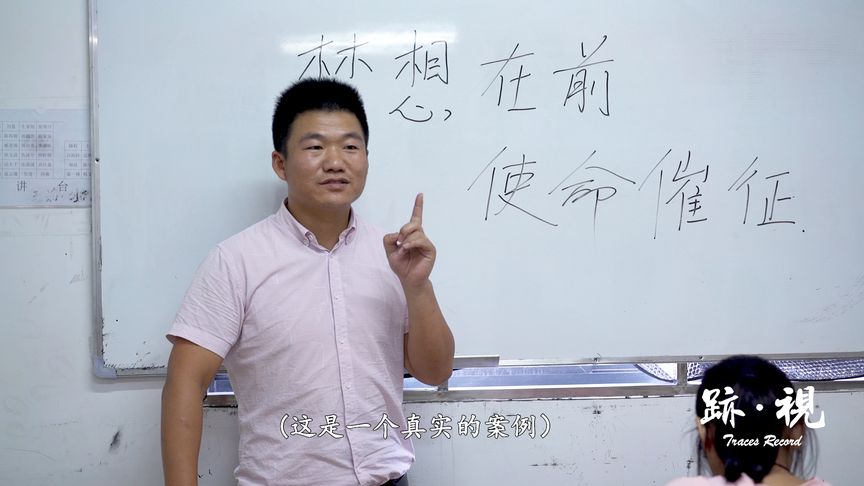 梦想在前
使命催征.
讲 台
(这是一个真实的案例)
跡·視
Traces Record